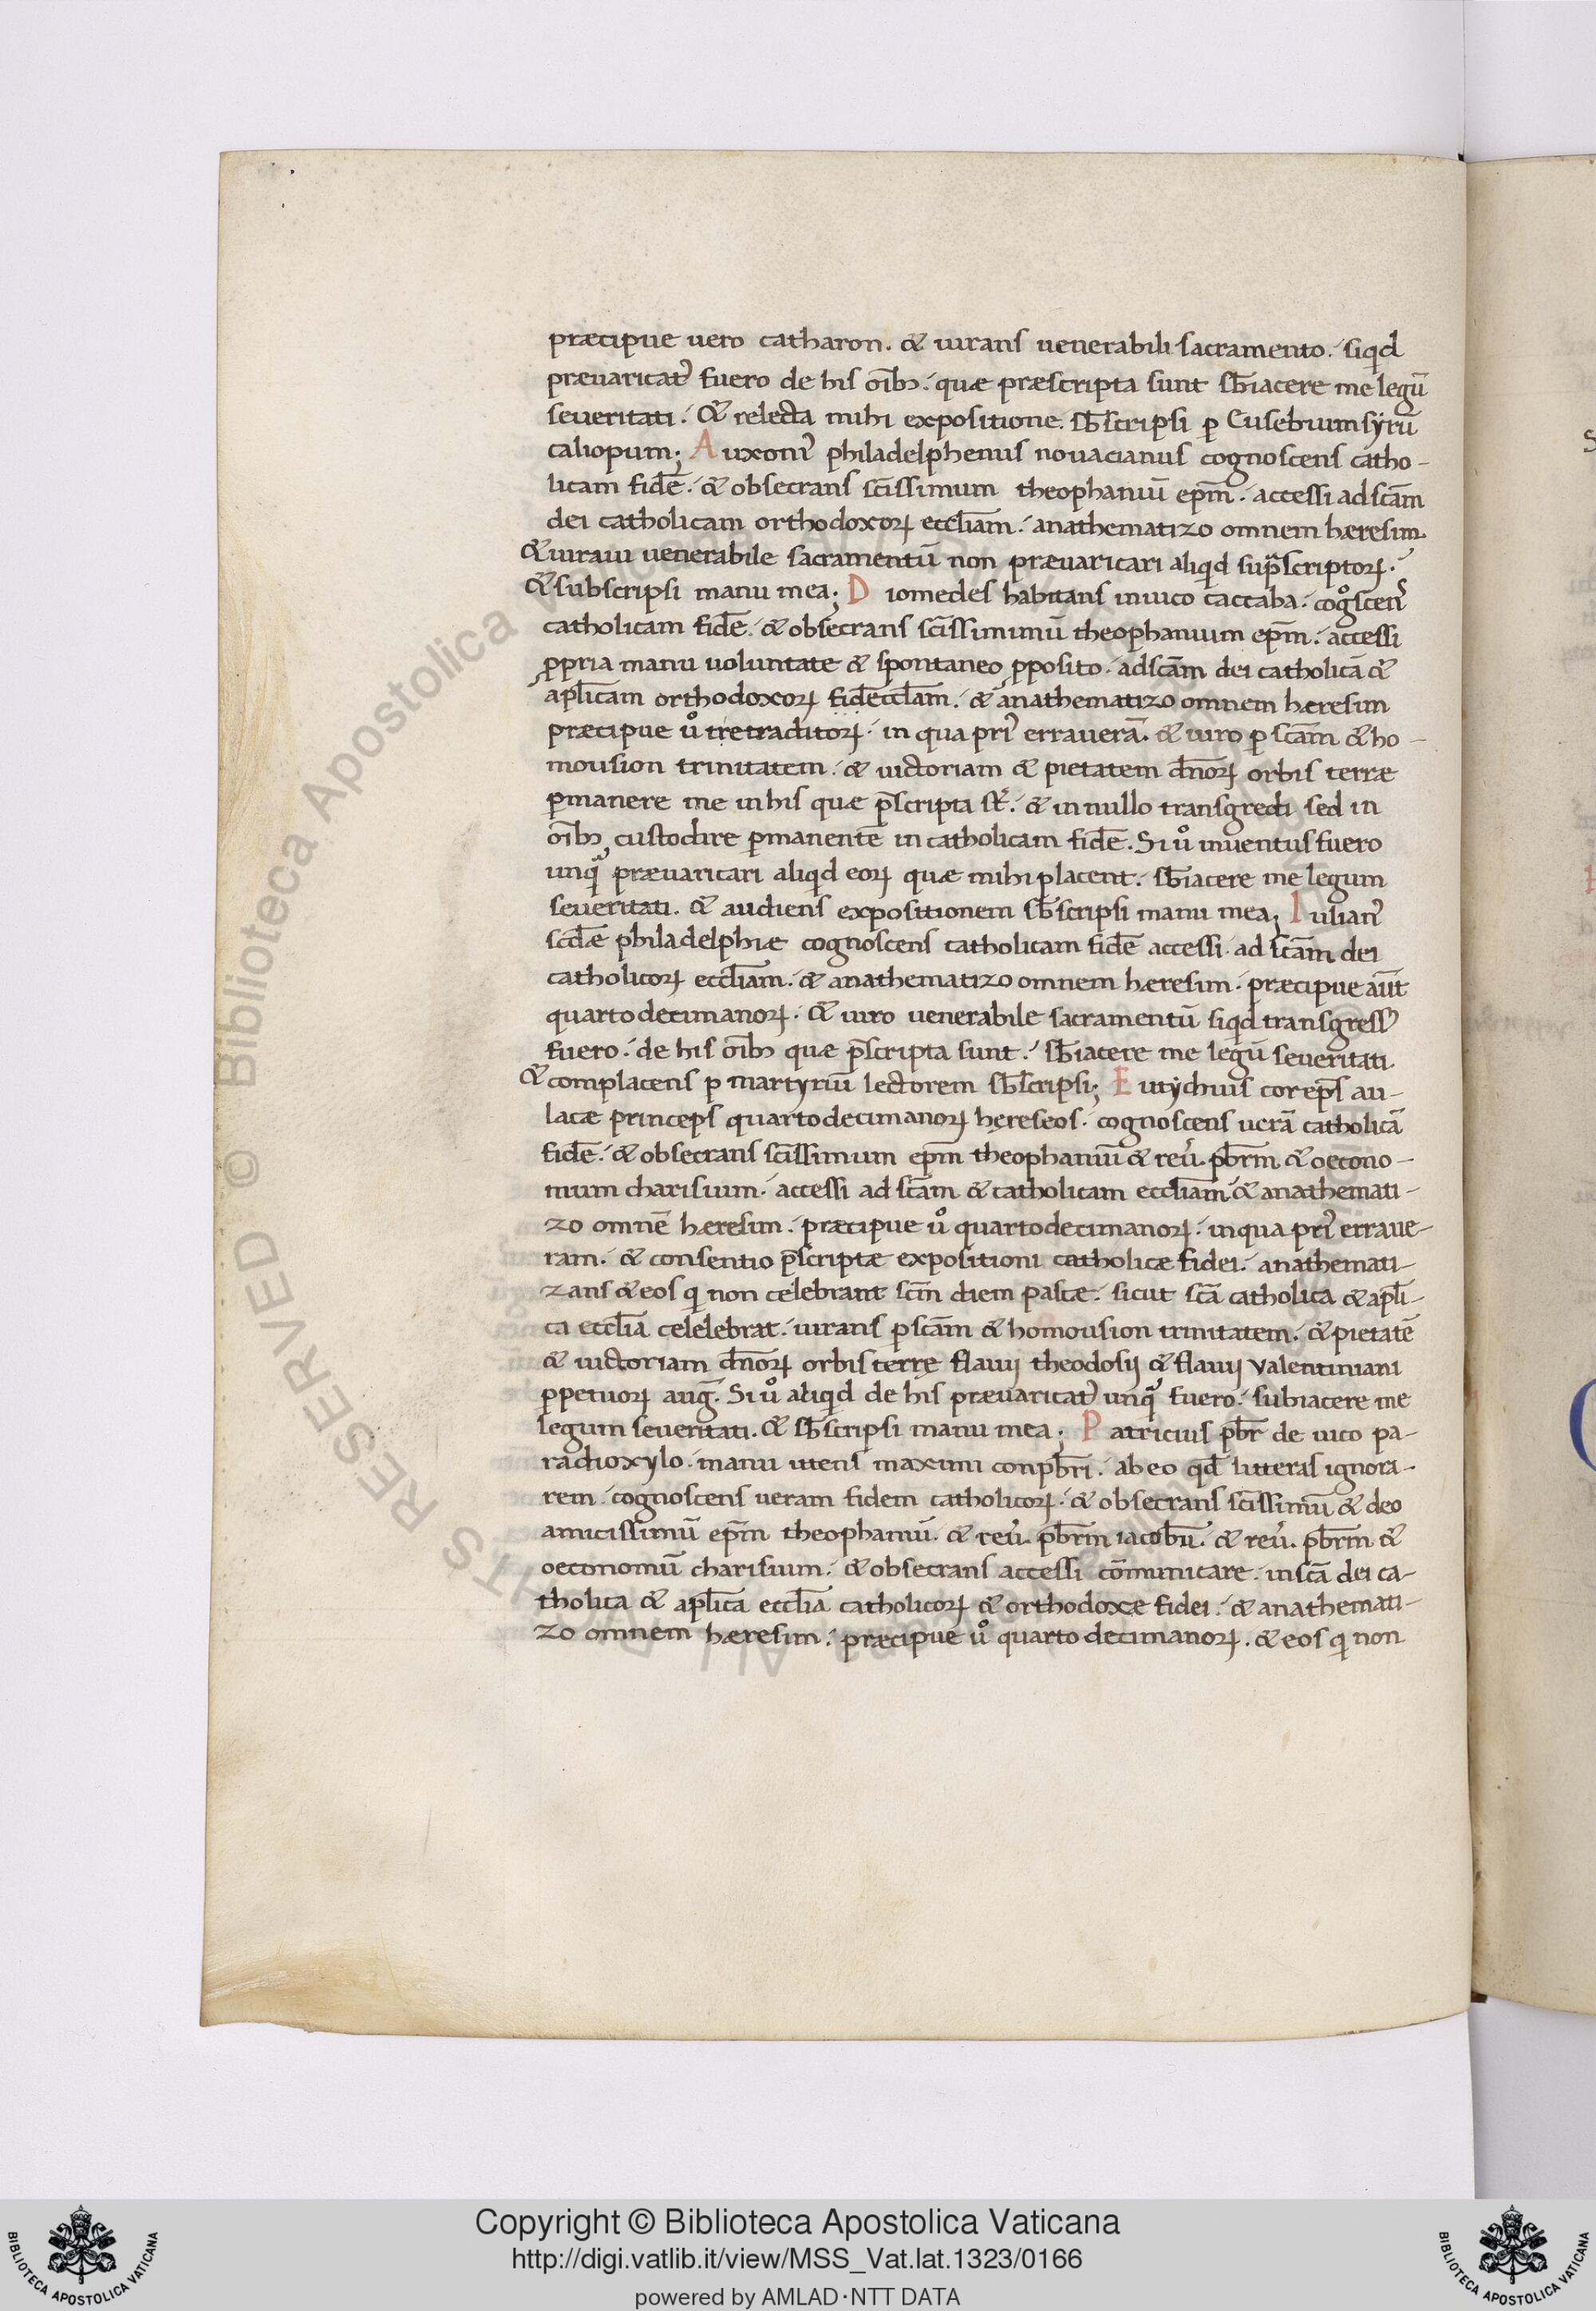 præcipue uero catharon. & iurans uenerabili sacramento. siqid
præuaricat᾽ fuero de his oīb;. quæ præscripta sunt sb̄iacere me legū
seueritati. & relecta mihi expositione. sb̄scripsi ꝑ Eusebium syrū
caliopum; Auxoni᾽ philadelphenus nouacianus cognoscens catho-
licam fidē. & obsecrans sc̄issimum theophaniū ep̄m. accessi ad sc̄am
dei catholicam orthodoxoꝝ eccl̄iam. anathematizo omnem hæresim.
& iuraui uenerabile sacramentū non præuaricari aliqid sup̄scriptoꝝ.
& subscripsi manu mea; Diomedes habitans in uico caccaba. cogͦscens
catholicam fidē. & obsecrans sc̄issimimū theophanium ep̄m. accessi
ꝓpria manu uoluntate & spontaneo ꝓposito. ad sc̄am dei catholicā &
apl̄icam orthodoxoꝝ fid̄ eccl̄am. & anathematizo omnem hæresim
præcipue uͦ tretraditoꝝ. in qua pri᾽ errauerā. & iuro ꝑ sc̄am & ho-
mousion trinitatem. & uictoriam & pietatem dn̄oꝝ orbis terræ
ꝑmanere me in his quæ p̄scripta st̄. & in nullo transgredi sed in
oīb; custodire ꝑmanentē in catholicam fidē. Si uͦ inuentus fuero
unqᵃ præuaricari aliqid eoꝝ quæ mihi placent. sb̄iacere me legum
seueritati. & audiens expositionem sb̄scripsi manu mea; Iulian᾽
scd̄æ philadelphiæ cognoscens catholicam fidē accessi. ad sc̄am dei
catholicoꝝ eccl̄iam. & anathematizo omnem hæresim. præcipue aūt
quartodecimanoꝝ. & iuro uenerabile sacramentū siqid transgress᾽
fuero. de his oīb; quæ p̄scripta sunt. sb̄iacere me legū seueritati.
& complacens ꝑ martyriū lectorem sb̄scripsi; Eutychius corep̄s au-
lacæ princeps quartodecimanoꝝ hęreseos. cognoscens uerā catholicā
fidē. & obsecrans sc̄issimum ep̄m theophaniū & reu̓. pb̄rm & oecono-
mum charisium. accessi ad sc̄am & catholicam eccl̄iam & anathemati-
zo omnē hæresim. præcipue uͦ quartodecimanoꝝ. in qua pri᾽ erraue-
ram. & consentio p̄scriptæ expositioni catholicæ fidei. anathemati-
zans & eos qi non celebrant sc̄m diem pascæ. sicut sc̄a catholica & apl̄i-
ca eccl̄ia celelebrat. iurans ꝑ sc̄am & homousion trinitatem. & pietatē
& uictoriam dn̄oꝝ orbis terrę flauij theodosij & flauij valentiniani
ꝑpetuoꝝ auḡ. Si uͦ aliqid de his præuaricat᾽ unqᵃ fuero. subiacere me
legum seueritati. & sb̄scripsi manu mea; Patricius pb̄r de uico pa-
radioxylo. manu utens maximi conpb̄ri. ab eo qd̄ litteras ignora-
rem. cognoscens ueram fidem catholicoꝝ. & obsecrans sc̄issimū & deo
amicissimū ep̄m theophaniū. & reu̓. pb̄rm iacobū. & reu̓. pb̄rm &
oeconomū charisium. & obsecrans accessi cōmunicare. in sc̄a dei ca-
tholica & apl̄ica eccl̄ia catholicoꝝ & orthodoxæ fidei. & anathemati-
zo omnem hæresim. præcipue uͦ quarto decimanoꝝ. & eos qi non
Copyright © Biblioteca Apostolica Vaticana
http://digi.vatlib.it/view/MSS_Vat.lat.1323/0166
powered by AMLAD·NTT DATA